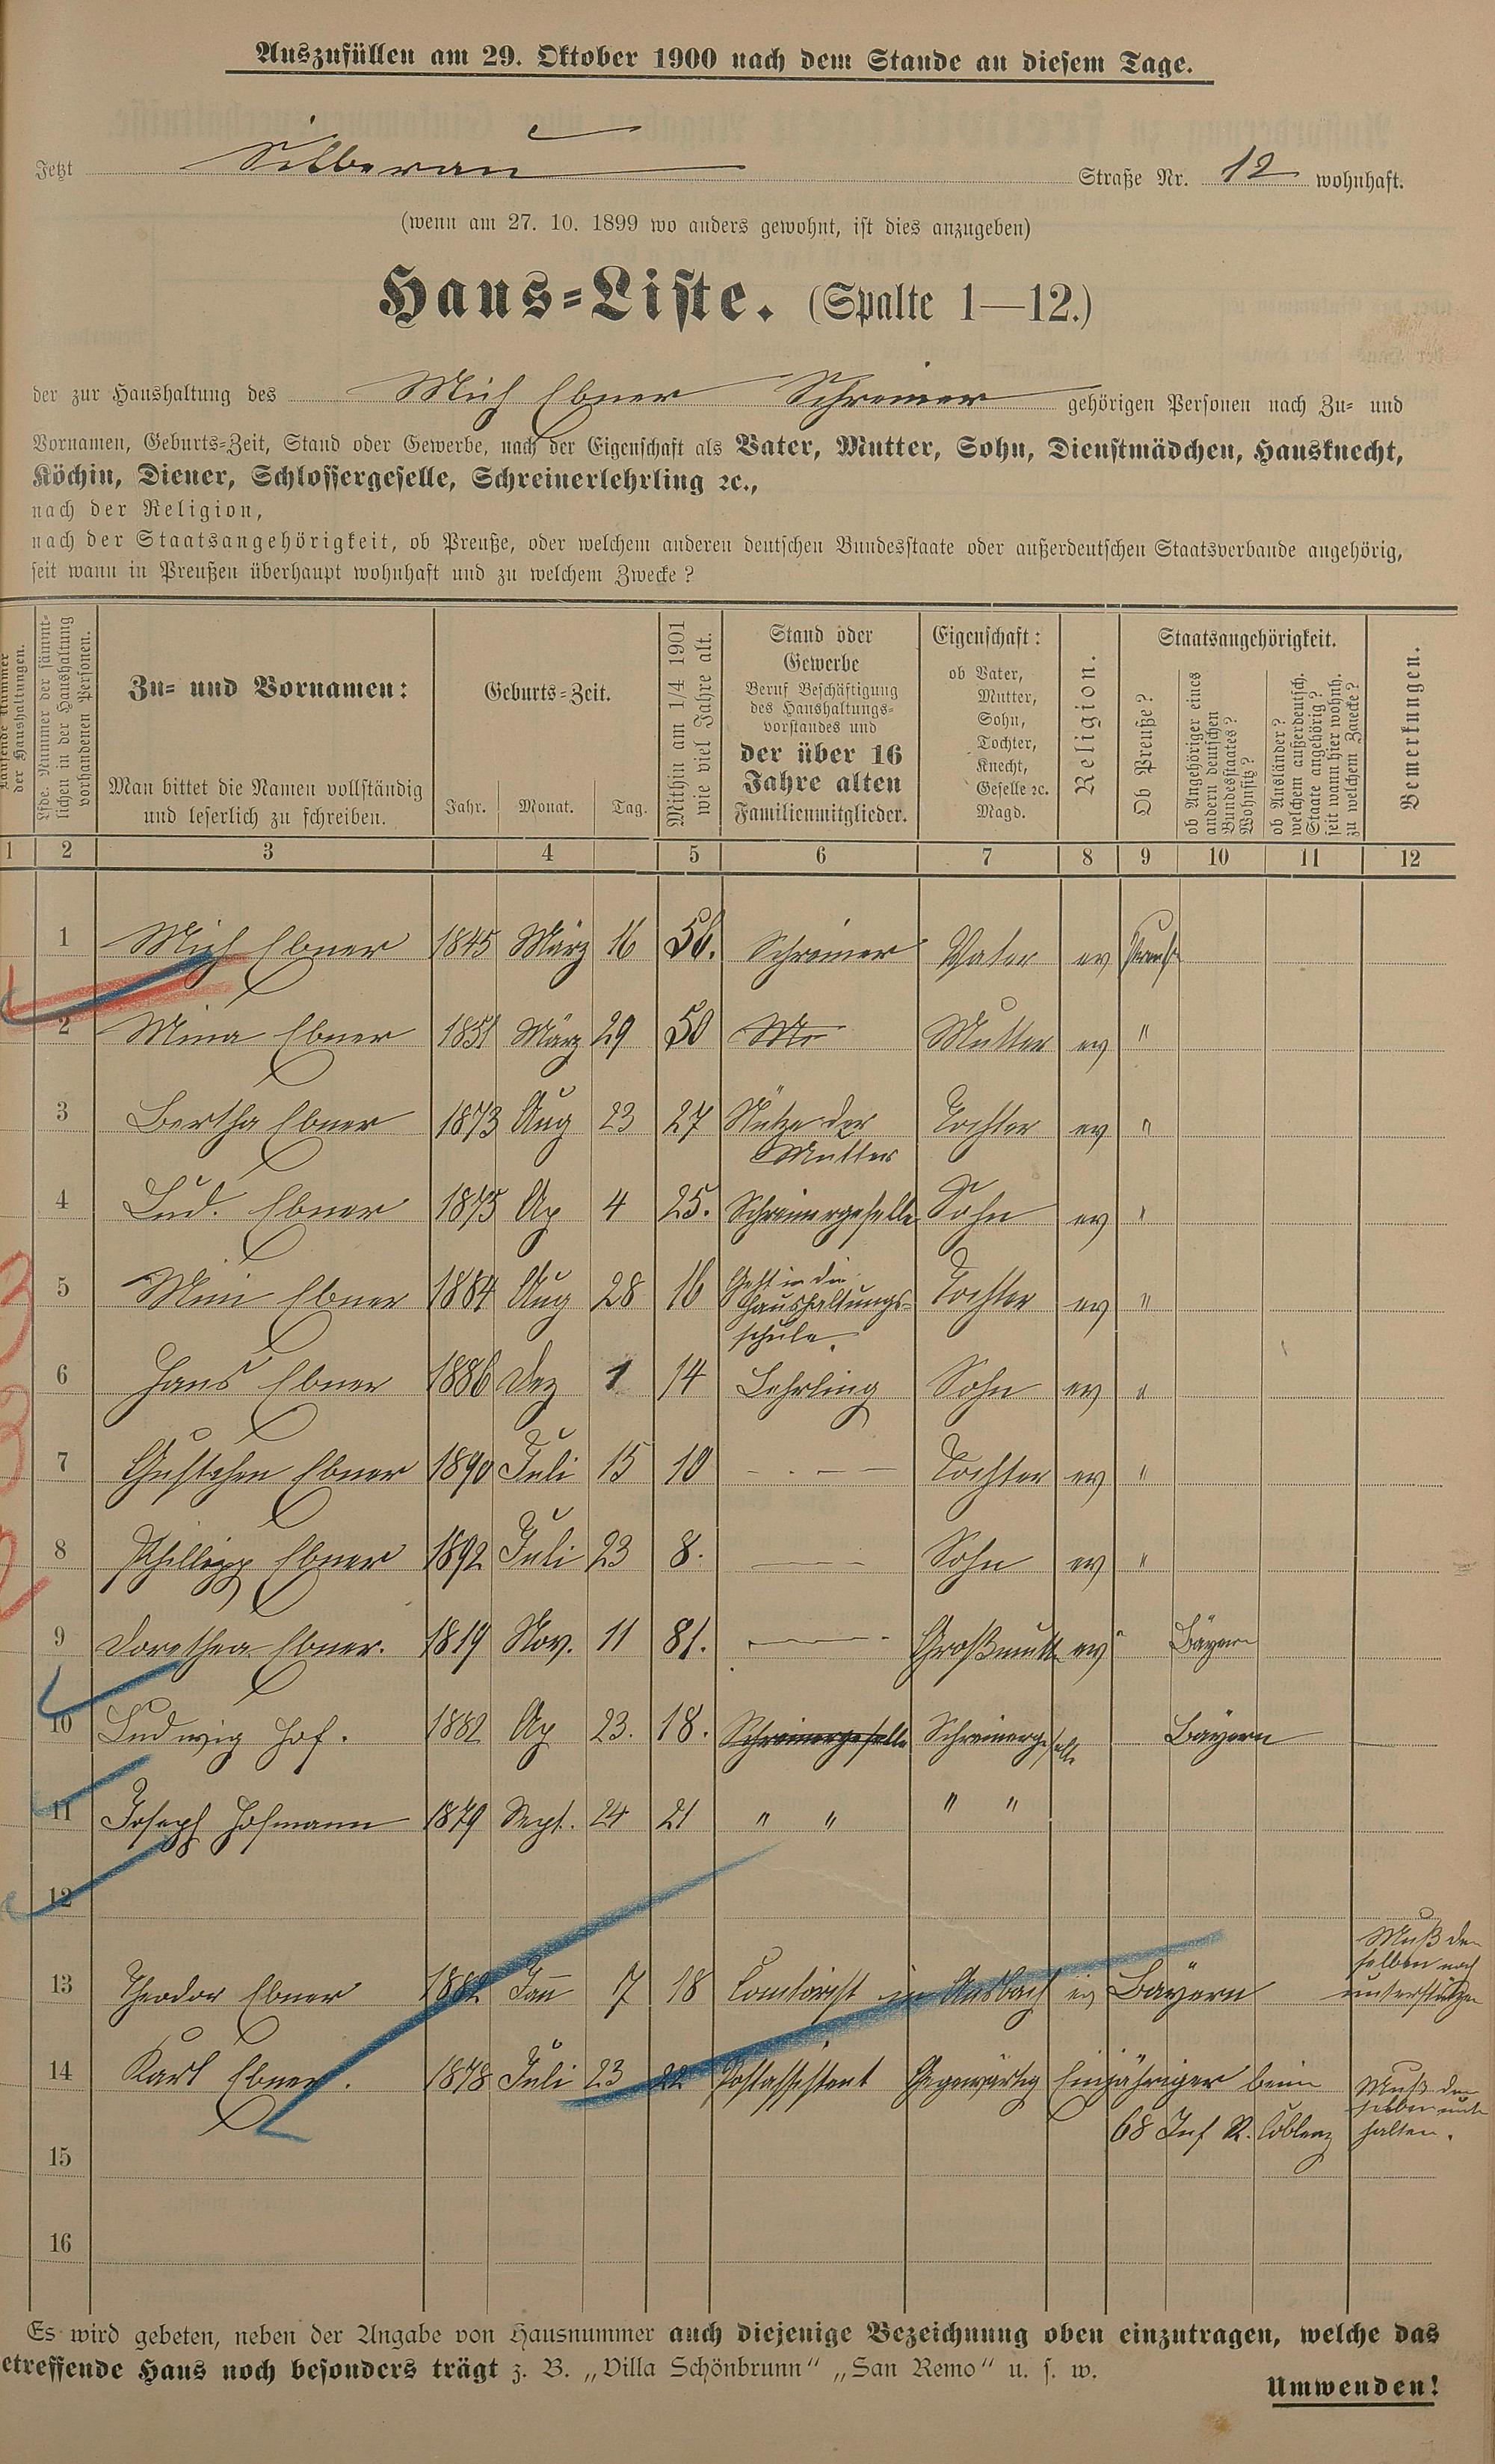 Auszufüllen am 29. Oktober 1900 nach dem Stande an diesem Tage.
Jetzt Silberau Straße Nr. 12 wohnhaft.
(wenn am 27. 10. 1899 wo anders gewohnt, ist dies anzugeben)
Haus-Liste. (Spalte 1—12.)
der zur Haushaltung des Mich Ebner Schreiner gehörigen Personen nach Zu- und
Vornamen, Geburts-Zeit, Stand oder Gewerbe, nach der Eigenschaft als Vater, Mutter, Sohn, Dienstmädchen, Hausknecht,
Köchin, Diener, Schlossergeselle, Schreinerlehrling ꝛc.,
nach der Religion,
nach der Staatsangehörigkeit, ob Preuße, oder welchem anderen deutschen Bundesstaate oder außerdeutschen Staatsverbande angehörig,
seit wann in Preußen überhaupt wohnhaft und zu welchem Zwecke?
Laufende Nummer
der Haushaltungen.
Lfde. Nummer der sämmt-
lichen in der Haushaltung
vorhandenen Personen.
Zu- und Vornamen:
Man bittet die Namen vollständig
und leserlich zu schreiben.
Geburts-Zeit.
Jahr. Monat. Tag.
Mithin am 1/4 1901
wie viel Jahre alt.
Stand oder
Gewerbe
Beruf Beschäftigung
des Haushaltungs-
vorstandes und
der über 16
Jahre alten
Familienmitglieder.
Eigenschaft:
ob Vater,
Mutter,
Sohn,
Tochter,
Knecht,
Geselle ꝛc.
Magd.
Religion.
Staatsangehörigkeit.
Ob Preuße?
ob Angehöriger eines
andern deutschen
Bundesstaates?
Wohnsitz?
ob Ausländer?
welchem außerdeutsch.
Staate angehörig?
seit wann hier wohnh.
zu welchem Zwecke?
Bemerkungen.
1 2 3 4 5 6 7 8 9 10 11 12
1 Mich Ebner 1845 März 16 56. Schreiner Vater ev
2 Mina Ebner 1851 März 29 50 Mutter ev "
3 Bertha Ebner 1873 Aug 23 27 Stütze der Tochter ev "
Mutter
4 Lud. Ebner 1875 Ap 4 25. Schreinergeselle Sohn ev "
5 Mini Ebner 1884 Aug 28 16 Geht in die Tochter ev "
Haushaltungs-
schule.
6 Hans Ebner 1886 Dez 1 14 Lehrling Sohn ev "
7 Gustchen Ebner 1890 Juli 15 10 — . — Tochter ev "
8 Phillipp Ebner 1892 Juli 23 8. — Sohn ev "
9 Dorethea Ebner. 1819 Nov. 11 81. — Großmutt ev " Bayern
10 Ludwig Hof. 1882 Ap 23. 18. Schreinergeselle Schreinergeselle Bayern
11 Joseph Hofmann 1879 Sept. 24 21 " " " "
12
13 Theodor Ebner 1882 Jan 7 18 Comtorist in Ansbach ev Bayern
Muß den
selben noch
unterstützen
14 Karl Ebner. 1878 Juli 23 22 Postassistent Gegenwärtig Einjähriger beim
68 Inf R. Coblenz
Muß den
selben
halten.
15
16
Es wird gebeten, neben der Angabe von Hausnummer auch diejenige Bezeichnung oben einzutragen, welche das
etreffende Haus noch besonders trägt z. B. „Villa Schönbrunn“ „San Remo“ u. s. w.
Umwenden!